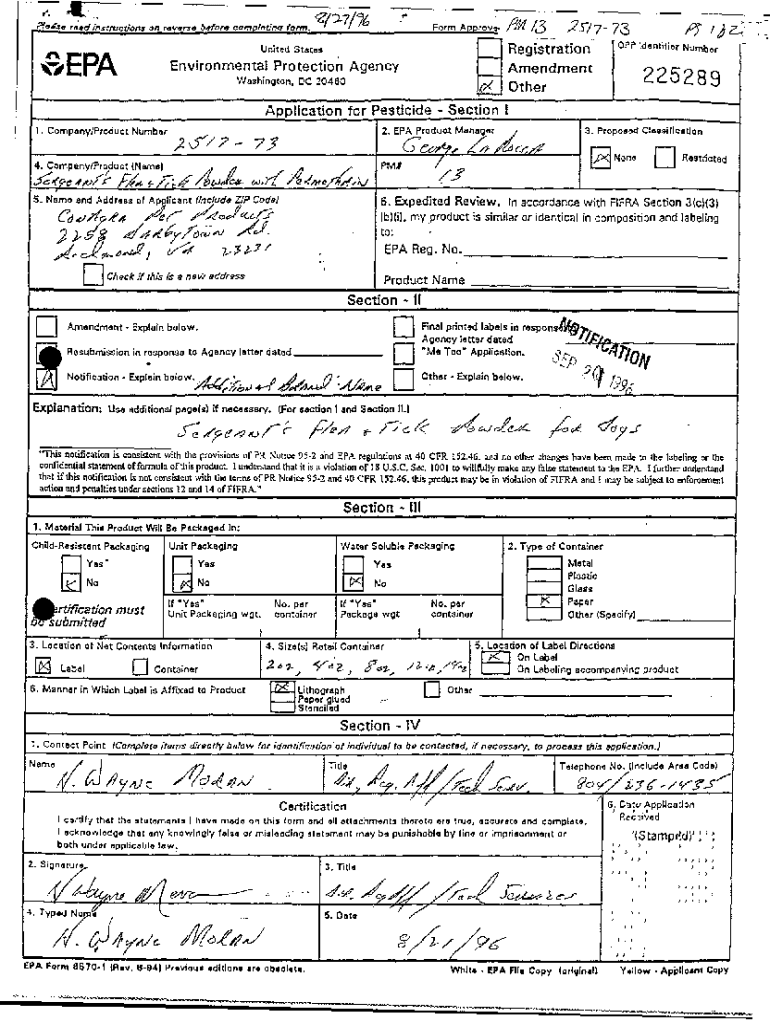 8/27/96
Please read instructions on reverse before completing form.
Form Approve PM 13 2517-73
United States
EPA Environmental Protection Agency
Washington, DC 20460
Registration
Amendment
Other
OPP Identifier Number
225289
Application for Pesticide - Section I
1. Company/Product Number
2517-73
2. EPA Product Manager
George LaRocca
3. Proposed Classification
None Restricted
4. Company/Product (Name)
Sergeant's Flea & Tick Powder with Permethrin
PM#
13
5. Name and Address of Applicant (Include ZIP Code)
ConAgra Pet Products
2258 Darbytown Rd.
Richmond, VA 23231
Check if this is a new address
6. Expedited Review. In accordance with FIFRA Section 3(c)(3)
(b)(i), my product is similar or identical in composition and labeling
to:
EPA Reg. No.
Product Name
Section - II
Amendment - Explain below.
Resubmission in response to Agency letter dated
Notification - Explain below. Additional Brand Name
Final printed labels in response
Agency letter dated
"Me Too" Application.
Other - Explain below.
NOTIFICATION
SEP 20 1996
Explanation: Use additional page(s) if necessary. (For section I and Section II.)
Sergeant's Flea & Tick Powder for Dogs
"This notification is consistent with the provisions of PR Notice 95-2 and EPA regulations at 40 CFR 152.46, and no other changes have been made to the labeling or the
confidential statement of formula of this product. I understand that it is a violation of 18 U.S.C. Sec. 1001 to willfully make any false statement to the EPA. I further understand
that if this notification is not consistent with the terms of PR Notice 95-2 and 40 CFR 152.46, this product may be in violation of FIFRA and I may be subject to enforcement
action and penalties under sections 12 and 14 of FIFRA."
Section - III
1. Material This Product Will Be Packaged In:
Child-Resistant Packaging
Yes*
No
ertification must
be submitted
Unit Packaging
Yes
No
If "Yes" No. per
Unit Packaging wgt. container
Water Soluble Packaging
Yes
No
If "Yes" No. per
Package wgt container
2. Type of Container
Metal
Plastic
Glass
Paper
Other (Specify)
3. Location of Net Contents Information
Label Container
4. Size(s) Retail Container
2oz, 4oz, 8oz, 12oz,
5. Location of Label Directions
On Label
On Labeling accompanying product
6. Manner in Which Label is Affixed to Product
Lithograph
Paper glued
Stenciled
Other
Section - IV
1. Contact Point (Complete items directly below for identification of individual to be contacted, if necessary, to process this application.)
Name
H. Wayne Moran
Title
Dir. Reg. Aff/Tech Serv.
Telephone No. (Include Area Code)
804/236-1435
Certification
I certify that the statements I have made on this form and all attachments thereto are true, accurate and complete.
I acknowledge that any knowingly false or misleading statement may be punishable by fine or imprisonment or
both under applicable law.
6. Date Application
Received
(Stamped)
2. Signature
H Wayne Moran
3. Title
Dir. Reg Aff/Tech Services
4. Typed Name
H. Wayne Moran
5. Date
8/21/96
EPA Form 8570-1 (Rev. 8-94) Previous editions are obsolete.
White - EPA File Copy (original) Yellow - Applicant Copy